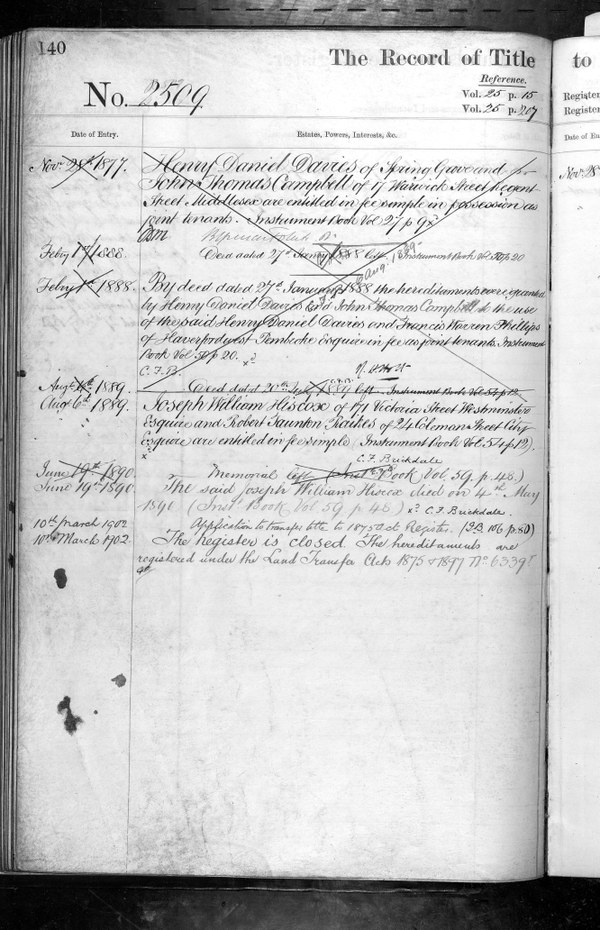 140
The Record of Title
Reference.
No. 2509
Vol. 25 p. 15
Vol. 25 p. 207
Date of Entry.
Estates, Powers, Interests, &c.
Novr 1877. Henry Daniel Davies of Spring Grove and
John Thomas Campbell of 17 Warwick Street Regent
Street Middlesex are entitled in fee simple in possession as
joint tenants. Instrument Book Vol 27 p 92
Feby 1888. Deed dated 27th Jany 1888 left Instrument Book Vol 50 p 20
2 Aug. 1889
Feby 1st 1888. By deed dated 27th January 1888 the hereditaments were granted
by Henry Daniel Davies and John Thomas Campbell to the use
of the said Henry Daniel Davies and Francis Warren Phillips
of Haverfordwest Pembroke esquire in fee as joint tenants. Instrument
Book Vol 50 p 20.
C.F.B.
Augt 1889. Deed dated 20th 1889 left Instrument Book Vol 54 p 12
Aug 6th 1889. Joseph William Hiscox of 171 Victoria Street Westminster
Esquire and Robert Taunton Raikes of 24 Coleman Street City
Esquire are entitled in fee simple (Instrument Book Vol. 54 p 12).
C. F. Brickdale
June 19th 1890. Memorial left (Inst. Book Vol. 59. p. 48.)
June 19th 1890 The said Joseph William Hiscox died on 4th May
1890. (Inst. Book Vol 59 p 48) C. F. Brickdale.
10th March 1902 Application to transfer title to 1875 Act Register. (I.B. 106 p. 80)
10th March 1902. The Register is closed. The hereditaments are
registered under the Land Transfer Acts 1875 & 1897 No. 63398
to
Register
Register
Date of En